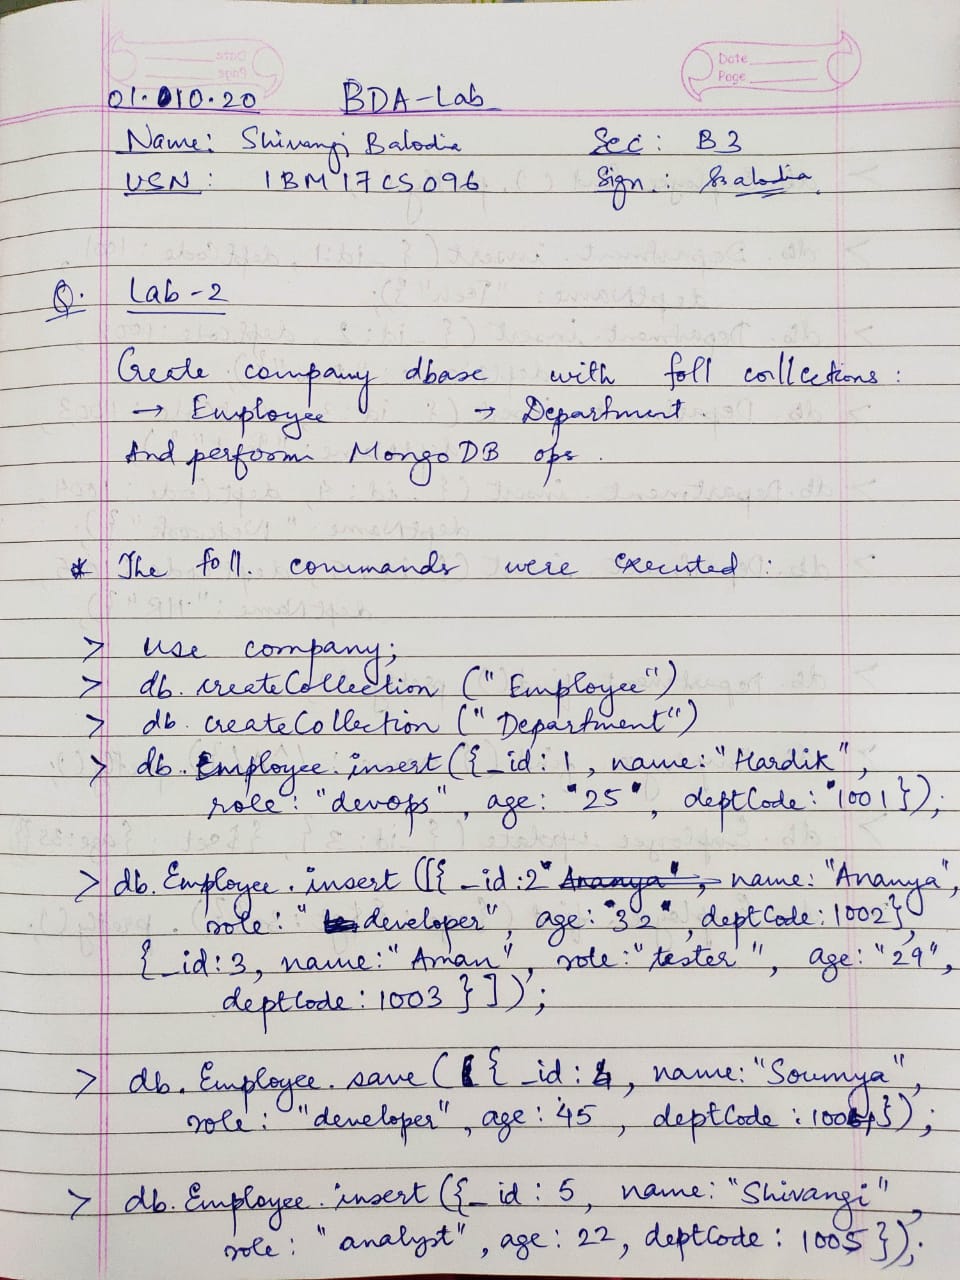 Date
Page
01.010.20 BDA-Lab
Name: Shivangi Balodia Sec: B3
USN: 1BM17CS096 Sign.: Balodia
Q. Lab-2
Create company dbase with foll collections:
→ Employee → Department
And perform MongoDB ops.
* The foll. commands were executed:
> use company;
> db.createCollection ("Employee")
> db.createCollection ("Department")
> db.Employee.insert({_id:1, name:"Hardik",
role: "devops", age: "25", deptCode: "1001});
> db.Employee.insert ([{_id:2" Ananya", name: "Ananya",
role: "developer", age: "32", deptCode: 1002},
{_id:3, name:"Aman", role:"tester", age: "29",
deptCode: 1003}]);
> db.Employee.save ({_id:4, name:"Soumya",
role: "developer", age: 45, deptCode: 1004});
> db.Employee.insert({_id: 5, name: "Shivangi",
role: "analyst", age: 22, deptCode: 1005});